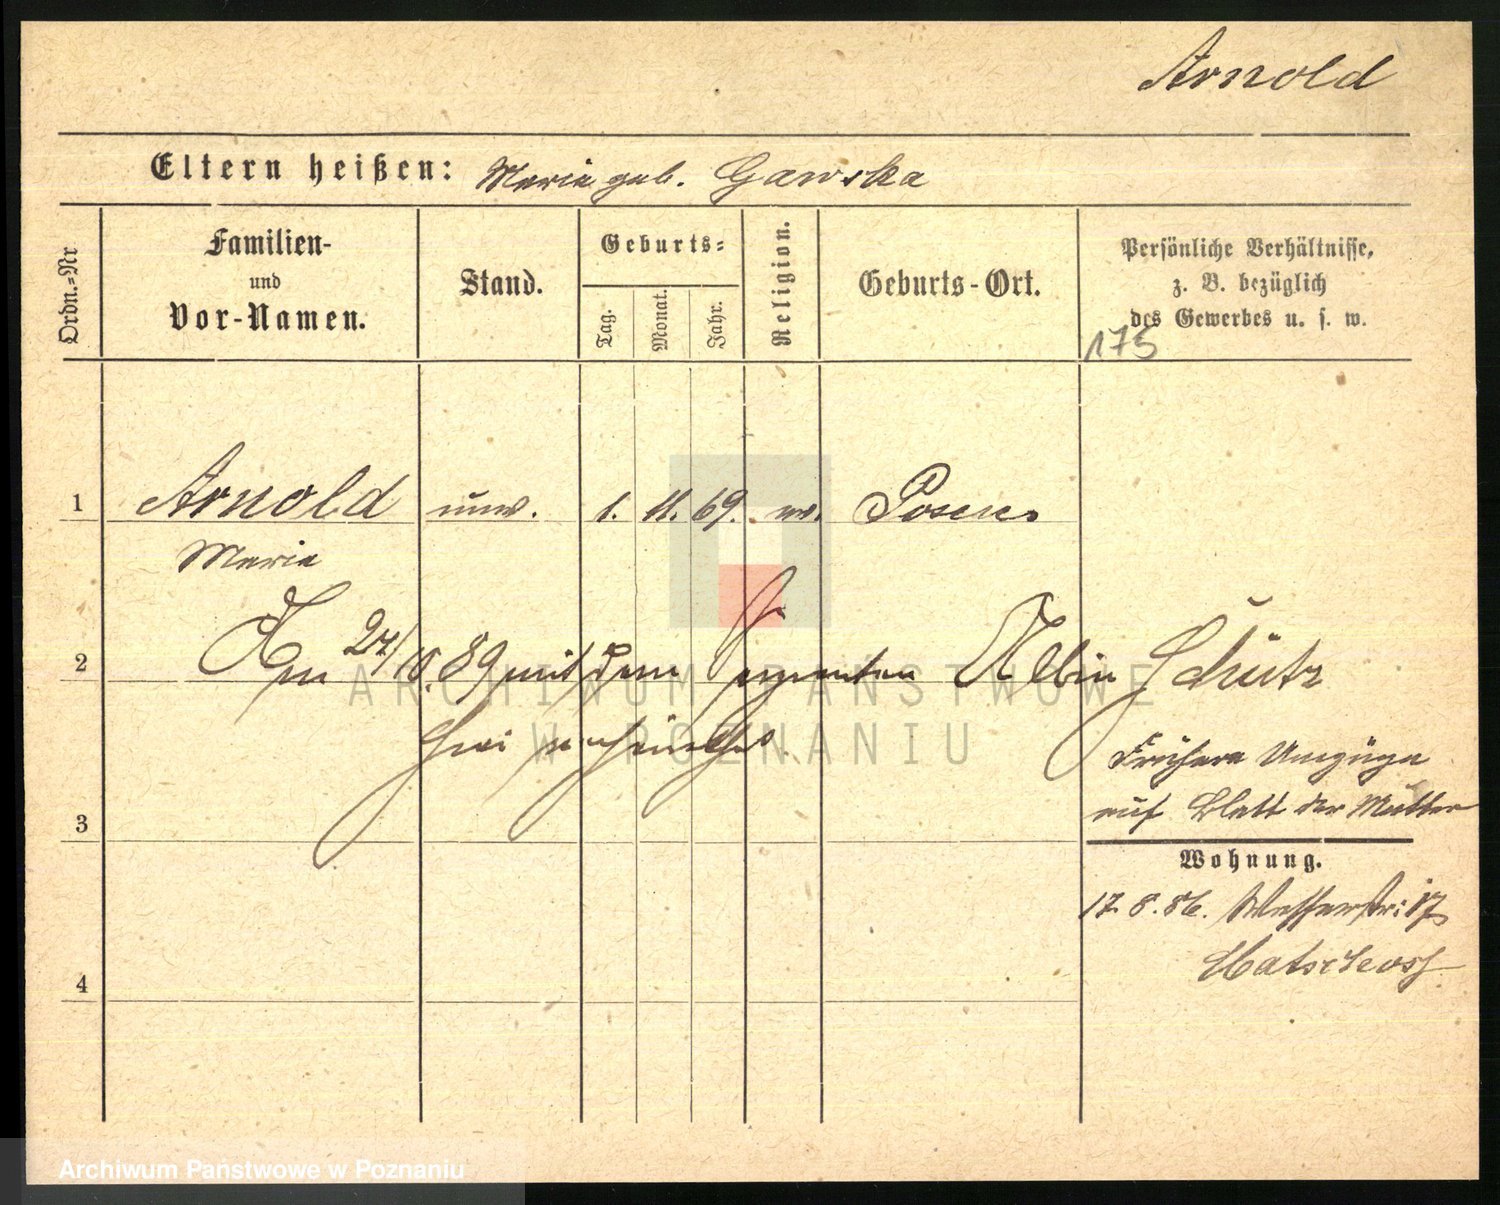 Arnold
Eltern heißen: Marie geb. Gawska
Ordn.=Nr
Familien-
und
Vor-Namen.
Stand.
Geburts=
Tag.
Monat.
Jahr.
Religion.
Geburts-Ort.
Persönliche Verhältnisse,
z. B. bezüglich
des Gewerbes u. s. w.
175
1 Arnold unv. 1. 11. 69. ev. Posen
Marie
2 Am 24/ 89 mit dem Sergeanten Albin Schütz
hier
Frühere Umzüge
auf Blatt der Mutter
3
Wohnung.
17. 8. 86. 17
4
ARCHIWUM PAŃSTWOWE
W POZNANIU
Archiwum Państwowe w Poznaniu